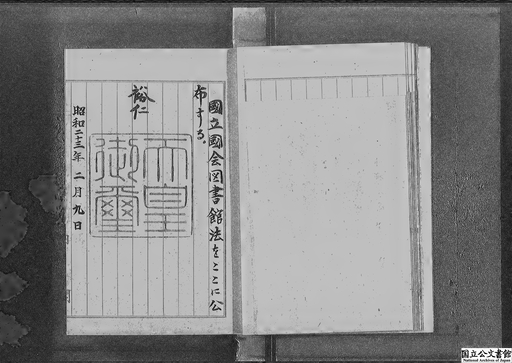 國立國会図書館法をここに公
布する。
裕仁
天皇
御璽
昭和二十三年 二月九日
国立公文書館
National Archives of Japan